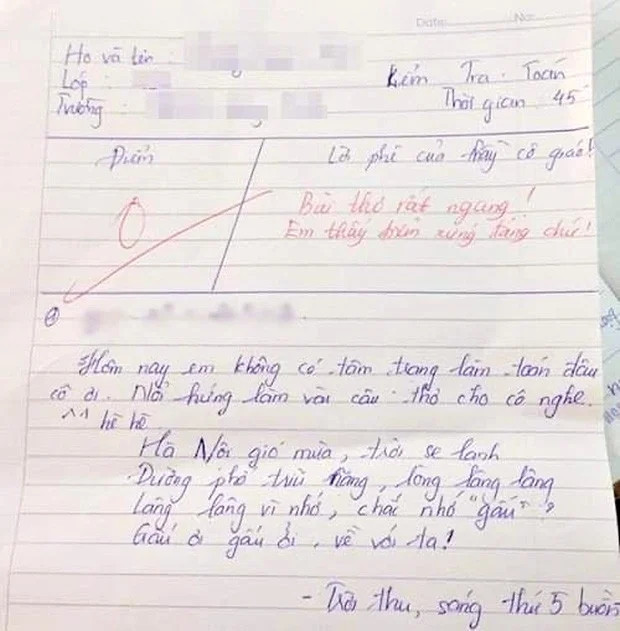 Date: No:
Họ và tên :
Lớp :
Trường :
Kiểm Tra Toán
Thời gian 45'
Điểm
Lời phê của thầy cô giáo!
0
Bài thơ rất ngang!
Em thấy điểm xứng đáng chứ!
Hôm nay em không có tâm trạng làm toán đâu
cô ơi. Nổi hứng làm vài câu thơ cho cô nghe.
^^ hề hề
Hà Nội gió mùa, trời se lạnh
Đường phố trĩu nặng, lòng lâng lâng
Lâng lâng vì nhớ, chắc nhớ "gấu"?
Gấu ơi gấu ổi, về với ta!
- Trời thu, sáng thứ 5 buồn